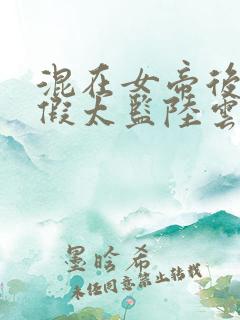 混在女帝後
假太監陸雲
墨晗希
未经同意禁止转载